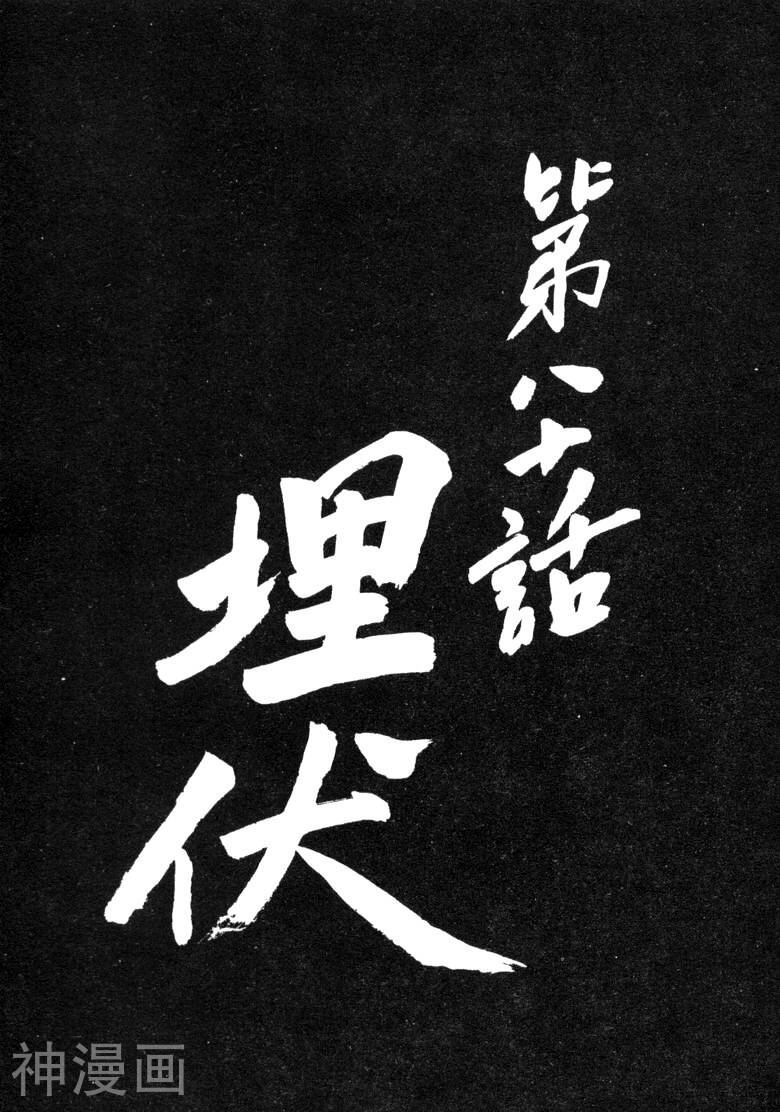 第八十話
埋伏
神漫画